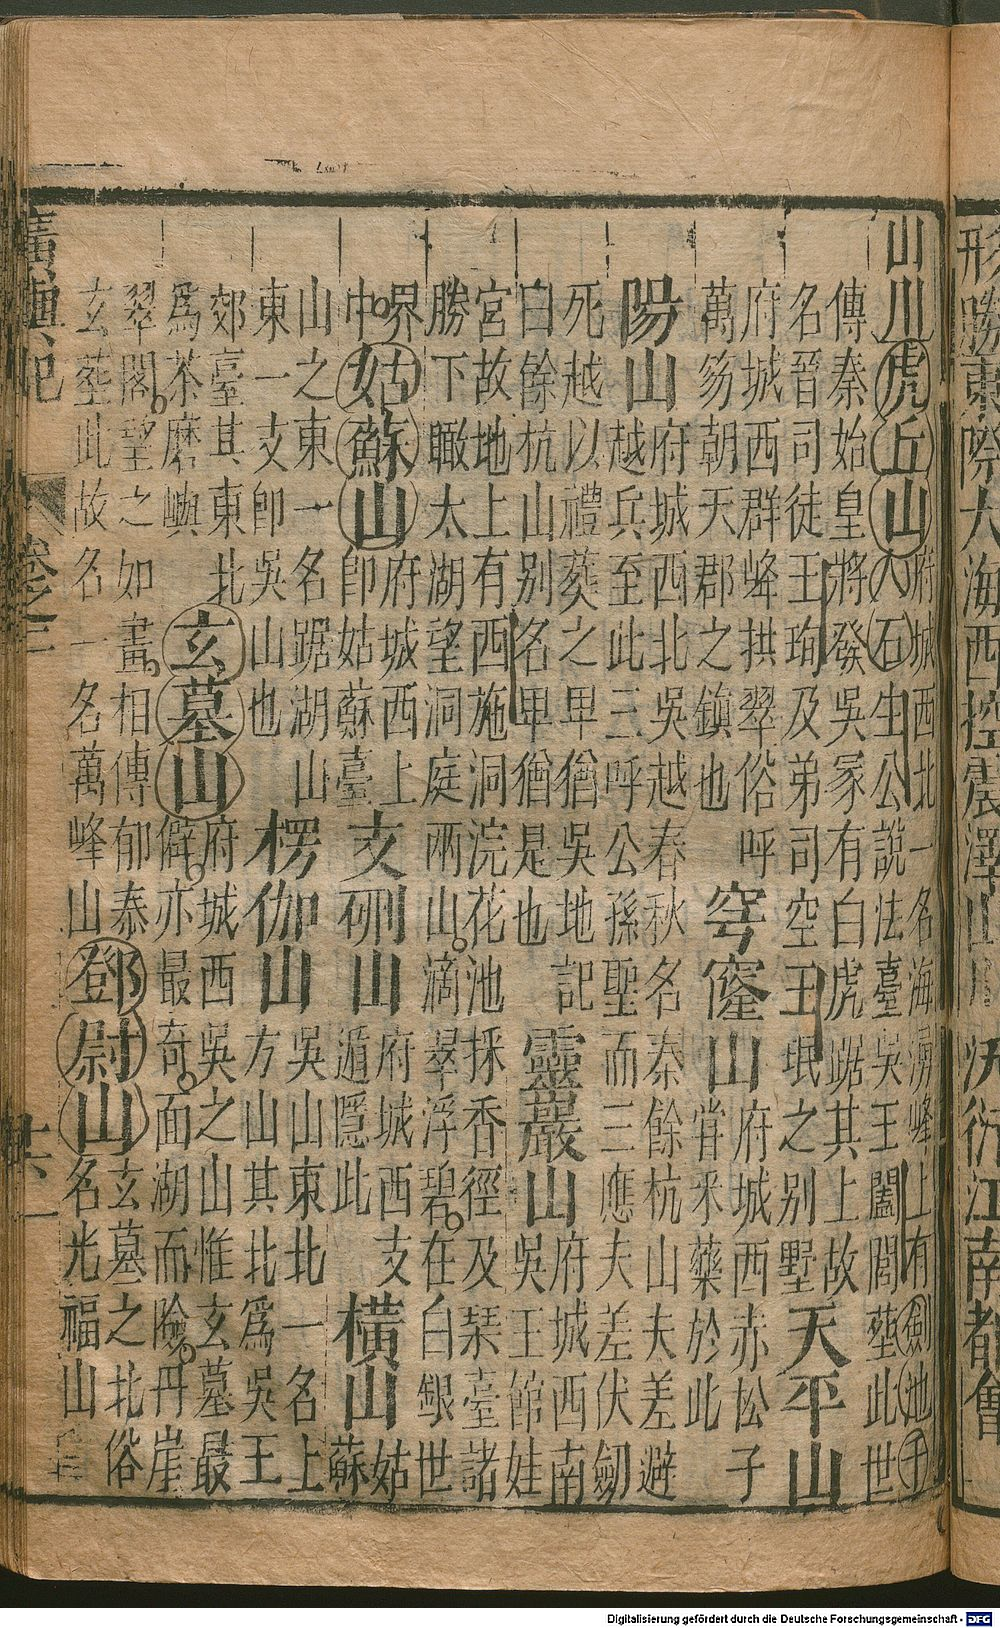 形勝東際大海西控震澤山川沃衍江南都會
山川虎丘山府城西北一名海湧峰上有劍池千人石生公說法臺吳王闔閭葬此世
傳秦始皇將發吳冢有白虎踞其上故名晉司徒王珣及弟司空王珉之別墅天平山
府城西群峰拱翠俗呼萬笏朝天郡之鎮也穹窿山府城西赤松子嘗采藥於此
陽山府城西北吳越春秋名秦餘杭山夫差避越兵至此三呼公孫聖而三應夫差伏劒
死越以禮葬之卑猶吳地記白餘杭山別名卑猶是也靈巖山府城西南吳王館娃
宮故地上有西施洞浣花池採香徑及琹臺諸勝下瞰太湖望洞庭兩山滴翠浮碧在白銀世
界中姑蘇山府城西上即姑蘇臺支硎山府城西支遁隱此橫山姑蘇
山之東一名踞湖山東一支即吳山也楞伽山吳山東北一名上方山其北為吳王
郊臺其東北為茶磨嶼玄墓山府城西吳之山惟玄墓最僻亦最奇面湖而險丹崖
翠閣望之如畫相傳郁泰玄葬此故名一名萬峰山鄧尉山玄墓之北俗名光福山
廣輿記 卷之三 十六
Digitalisierung gefördert durch die Deutsche Forschungsgemeinschaft - DFG